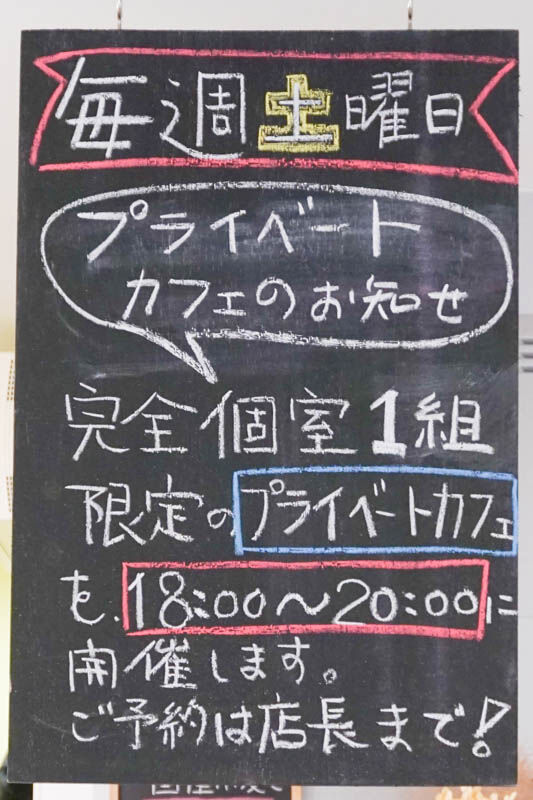 毎週土曜日
プライベート
カフェのお知せ
完全個室1組
限定のプライベートカフェ
を、18:00〜20:00に
開催します。
ご予約は店長まで!